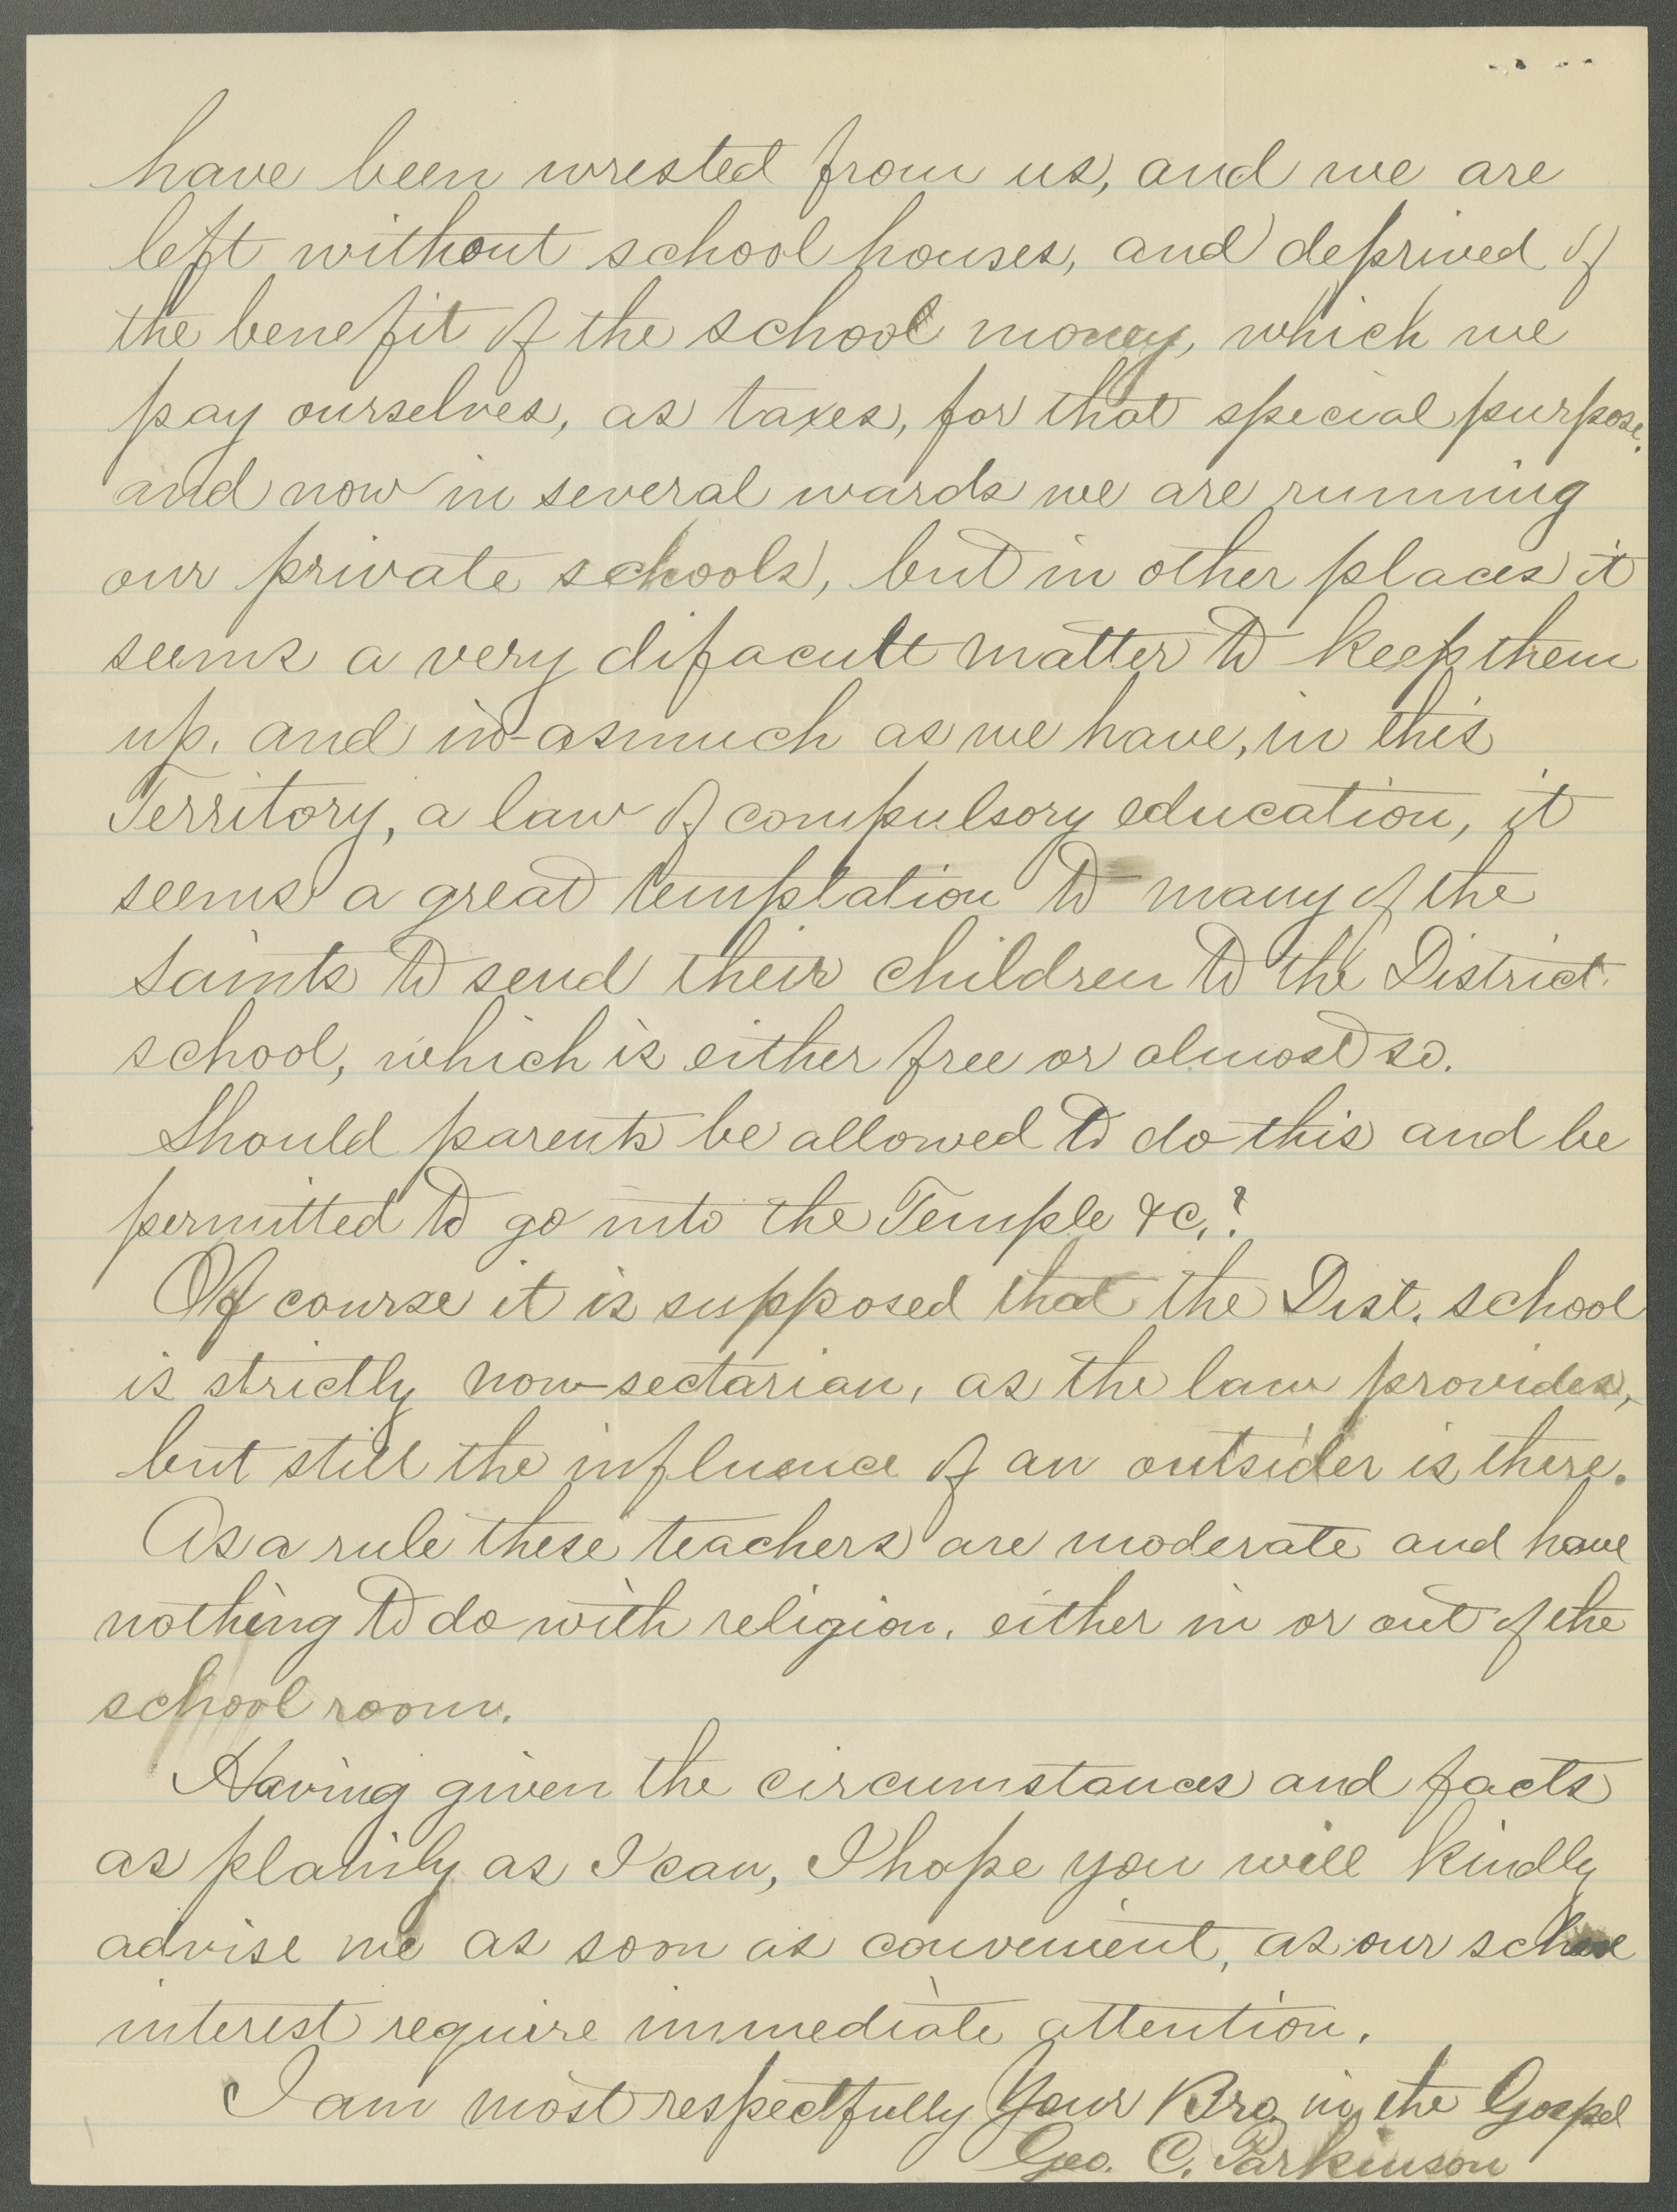 have been wrested from us, and we are
left without school houses, and deprived of
the benefit of the school money, which we
pay ourselves, as taxes, for that special purpose.
and now in several wards we are running
our private schools, but in other places it
seems a very difacult matter to keep them
up. and in-asmuch as we have, in this
Territory, a law of compulsory education, it
seems a great temptation to many of the
saints to send their children to the District
school, which is either free or almost so.
Should parents be allowed to do this and be
permitted to go into the Temple &c.?
Of course it is supposed that the Dist. school
is strictly non-sectarian, as the law provides,
but still the influence of an outsider is there.
As a rule these teachers are moderate and have
nothing to do with religion, either in or out of the
school room.
Having given the circumstances and facts
as plainly as I can, I hope you will kindly
advise me as soon as convenient, as our school
interest require immediate attention.
I am most respectfully Your Bro. in the Gospel
Geo. C. Parkinson